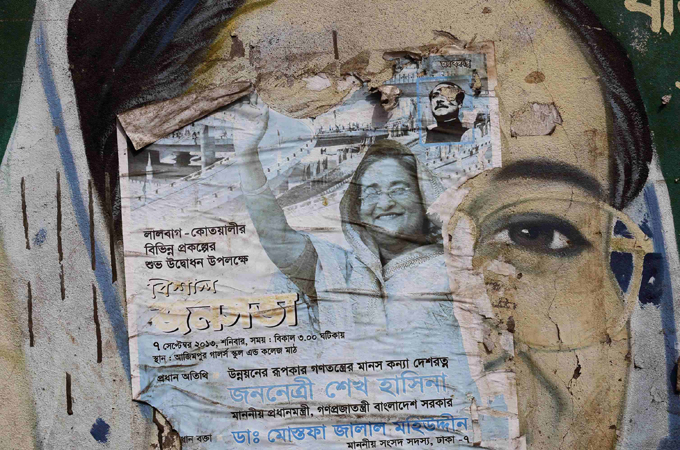 লালবাগ - কোতয়ালীর
বিভিন্ন প্রকল্পের
শুভ উদ্বোধন উপলক্ষে
বিশাল
জনসভা
৭ সেপ্টেম্বর ২০১৩, শনিবার, সময় : বিকাল ৩.০০ ঘটিকায়
স্থান : আজিমপুর গালর্স স্কুল এন্ড কলেজ মাঠ
প্রধান অতিথি
উন্নয়নের রূপকার গণতন্ত্রের মানস কন্যা দেশরত্ন
জননেত্রী শেখ হাসিনা
মাননীয় প্রধানমন্ত্রী, গণপ্রজাতন্ত্রী বাংলাদেশ সরকার
প্রধান বক্তা
ডাঃ মোস্তফা জালাল মহিউদ্দীন
মাননীয় সংসদ সদস্য, ঢাকা -৭